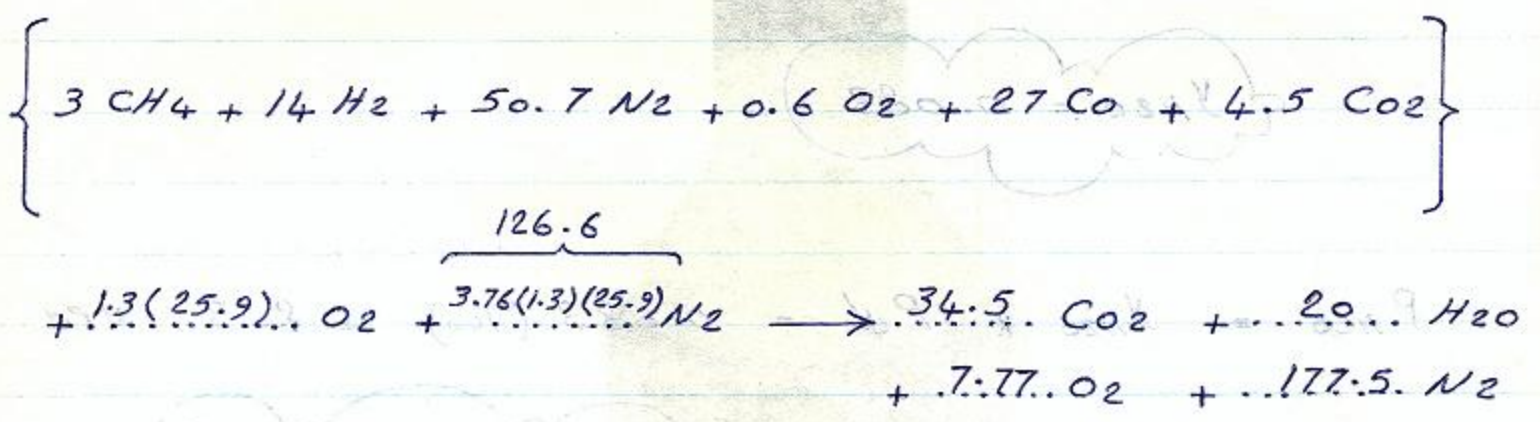 { 3 CH4 + 14 H2 + 50.7 N2 + 0.6 O2 + 27 Co + 4.5 Co2 }
126.6
+ 1.3(25.9) O2 + 3.76(1.3)(25.9) N2 → 34.5 Co2 + 20 H2O
+ 7.77 O2 + 177.5 N2